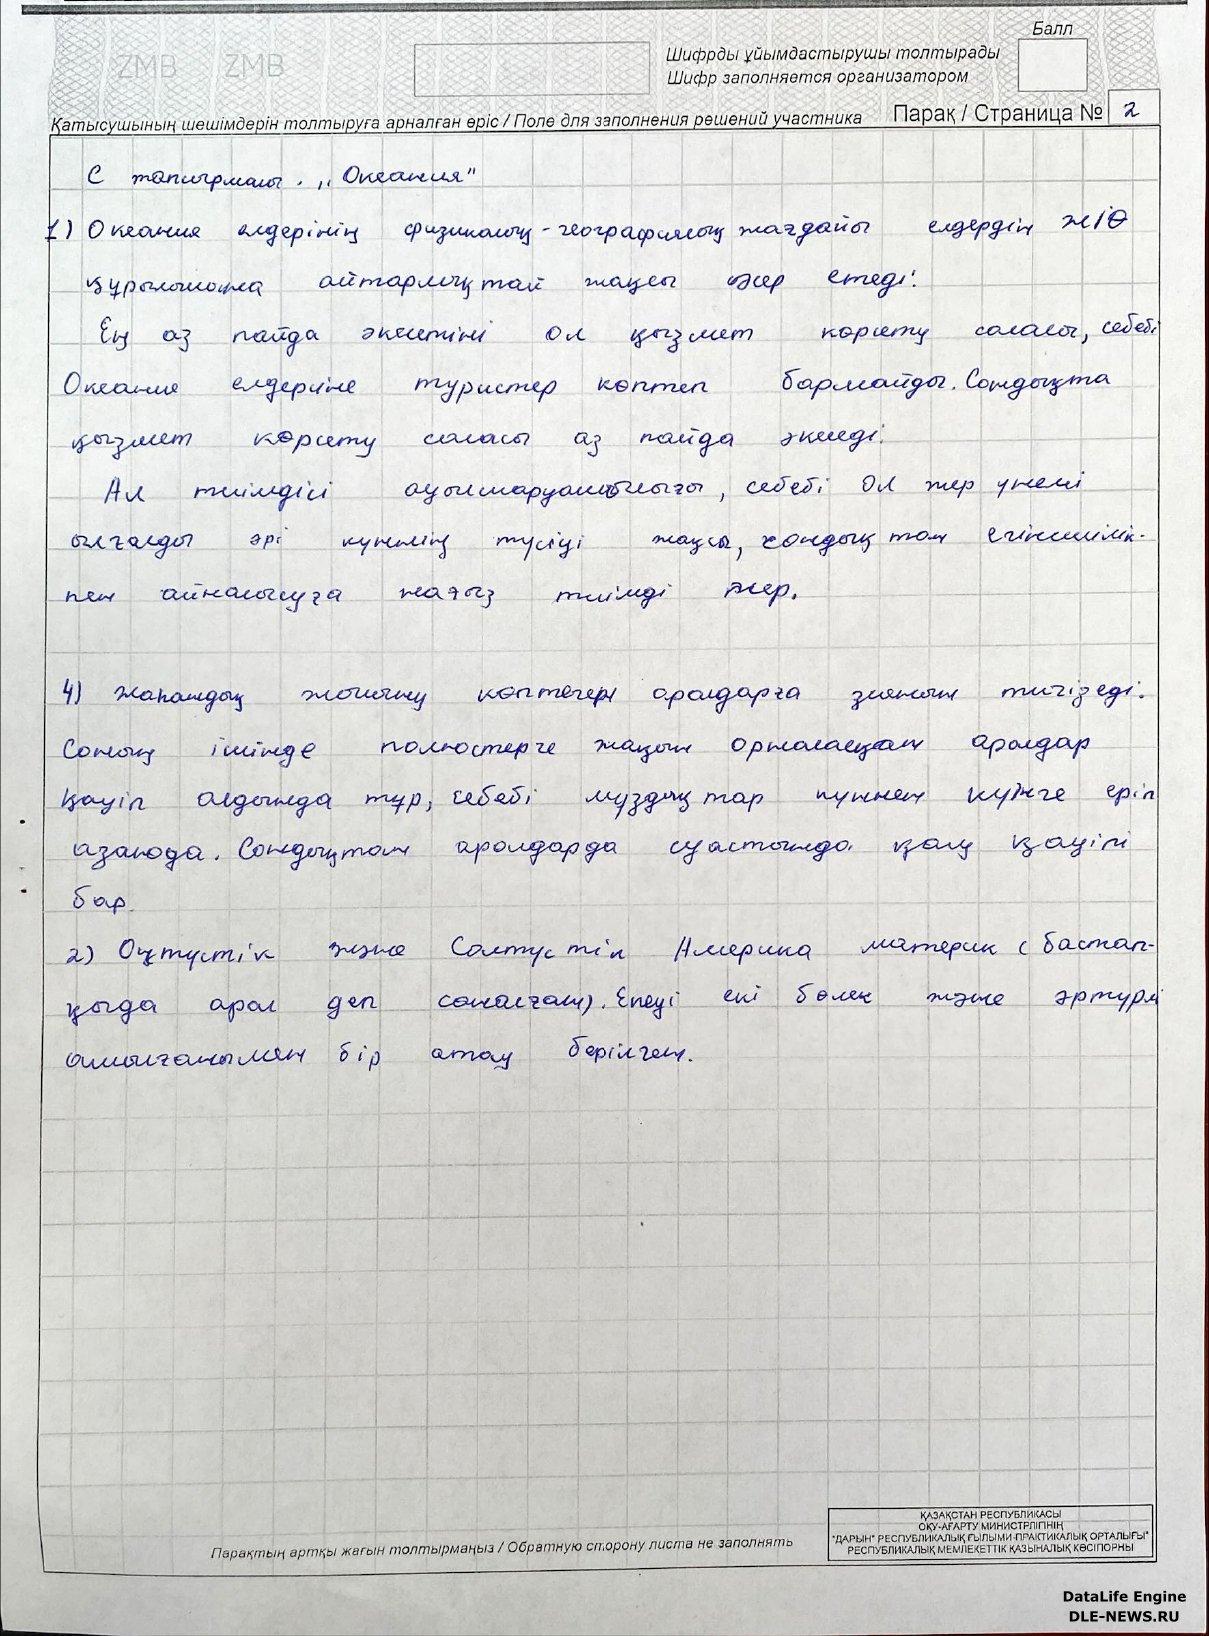 ZMB ZMB
Балл
Шифрды ұйымдастырушы толтырады
Шифр заполняется организатором
Қатысушының шешімдерін толтыруға арналған өріс / Поле для заполнения решений участника
Парақ / Страница № 2
С тапсырмасы. „Океания"
1) Океания елдерінің физикалық-географиялық жағдайы елдердің ЖІӨ
құрылымына айтарлықтай жақсы әсер етеді.
Ең аз пайда әкелетіні ол қызмет көрсету саласы, себебі
Океания елдеріне туристер көптеп бармайды. Сондықта
қызмет көрсету саласы аз пайда әкеледі.
Ал тиімдісі ауылшаруашылығы, себебі ол жер үнемі
ылғалды әрі күннің түсуі жақсы, сондықтан егіншілік-
пен айналысуға нағыз тиімді жер.
4) Жаһандық жылыну көптеген аралдарға зиянын тигізеді.
Соның ішінде полюстерге жақын орналасқан аралдар
қауіп алдында тұр, себебі мұздықтар күннен күнге еріп
азаюда. Сондықтан аралдарда су астында қалу қауіпі
бар.
2) Оңтүстік және Солтүстік Америка материк (бастап-
қыда арал деп саналған). Екеуі екі бөлек және әртүрлі
алынғанымен бір атау берілген.
Парақтың артқы жағын толтырмаңыз / Обратную сторону листа не заполнять
ҚАЗАҚСТАН РЕСПУБЛИКАСЫ
ОҚУ-АҒАРТУ МИНИСТРЛІГІНІҢ
"ДАРЫН" РЕСПУБЛИКАЛЫҚ ҒЫЛЫМИ-ПРАКТИКАЛЫҚ ОРТАЛЫҒЫ"
РЕСПУБЛИКАЛЫҚ МЕМЛЕКЕТТІК ҚАЗЫНАЛЫҚ КӘСІПОРНЫ
DataLife Engine
DLE-NEWS.RU